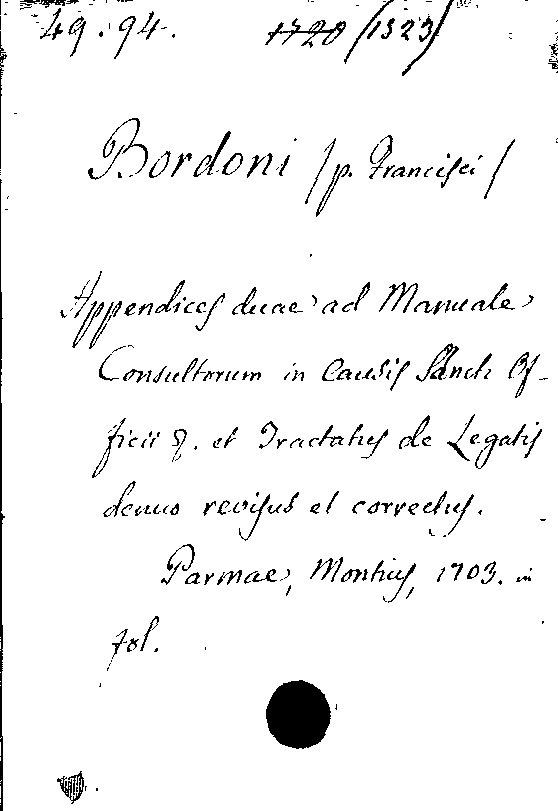 49.94. 1720 (1323)
Bordoni /p. Francisci/
Appendices duae ad Manuale
Consultorum in Causis Sancti Of-
ficii &. et Tractatus de Legatis
denuo revisus et correctus.
Parmae, Montius, 1703. in
fol.